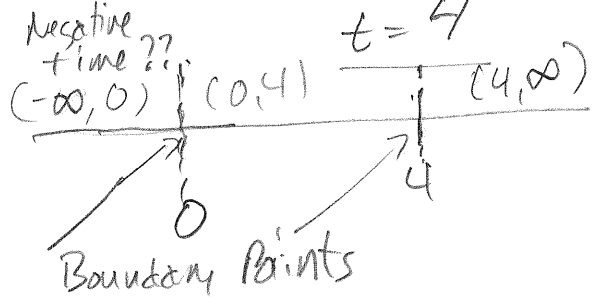 Negative
time??
t = 4
(-∞, 0) (0, 4) (4, ∞)
0
4
Boundary Points